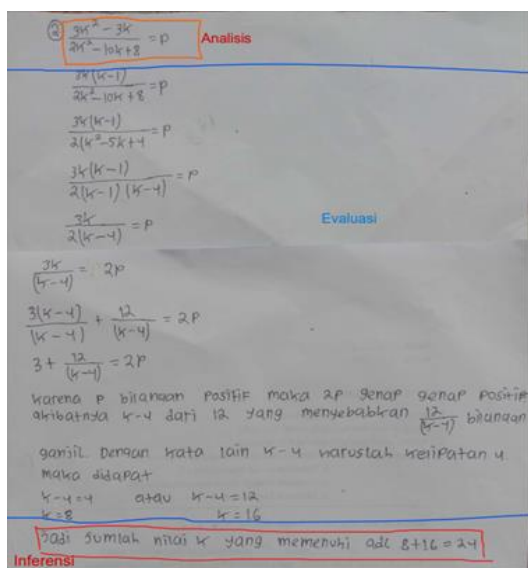 ② 3k² - 3k / 2k² - 10k + 8 = P Analisis
3k(k-1) / 2k² - 10k + 8 = P
3k(k-1) / 2(k² - 5k + 4 = P
3k(k-1) / 2(k-1) (k-4) = P
3k / 2(k-4) = P
Evaluasi
3k / (k-4) = 2P
3(k-4) / (k-4) + 12 / (k-4) = 2P
3 + 12 / (k-4) = 2P
karena P bilangan Positif maka 2P genap genap Positif
akibatnya k-4 dari 12 yang menyebabkan 12 / (k-4) bilangan
ganjil. Dengan kata lain k-4 haruslah kelipatan 4
maka didapat
k-4=4 atau k-4=12
k=8 k=16
Jadi Jumlah nilai k yang memenuhi adl 8+16 = 24
Inferensi